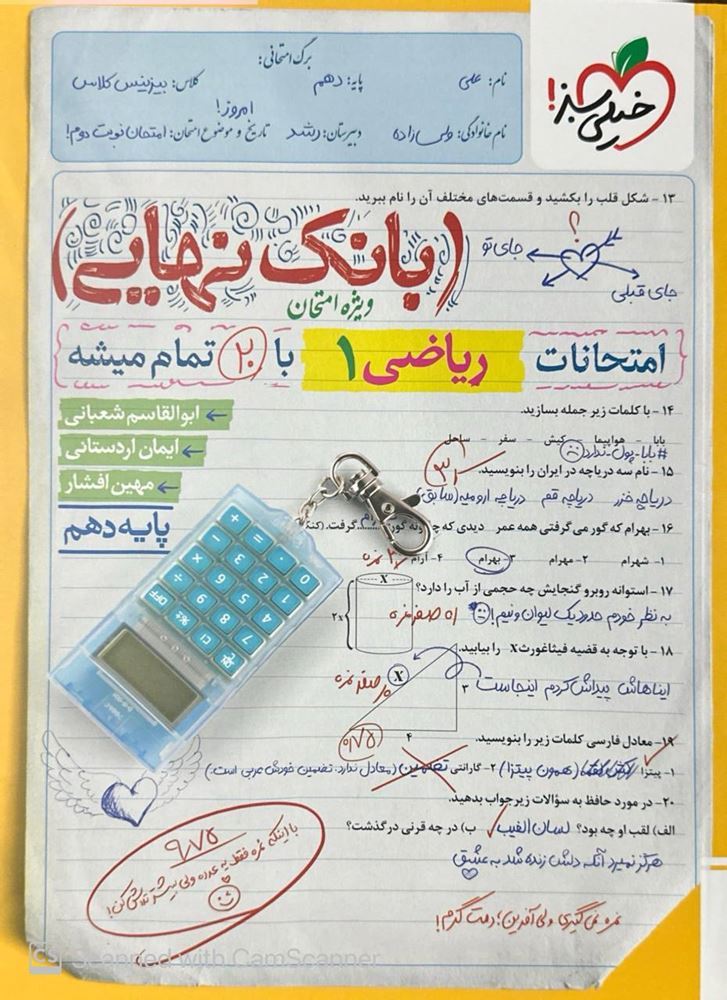 برگ امتحانی:
نام: علی پایه: دهم کلاس: بیزینس کلاس
امروز!
نام خانوادگی: ولی زاده دبیرستان: رشد تاریخ و موضوع امتحان: امتحان نوبت دوم!
خیلی سبز!
۱۳ - شکل قلب را بکشید و قسمت‌های مختلف آن را نام ببرید.
؟
جای تو
جای قبلی
(بانک نهایی)
ویژه امتحان
امتحانات ریاضی ۱ با ۲۰ تمام میشه
ابوالقاسم شعبانی
ایمان اردستانی
مهین افشار
پایه دهم
۱۴ - با کلمات زیر جمله بسازید.
بابا - هواپیما - کیش - سفر - ساحل
#بابا_پول_ندارد
۱۵ - نام سه دریاچه در ایران را بنویسید.
دریاچه خزر دریاچه قم دریاچه ارومیه (سابق)
۱۶ - بهرام که گور می‌گرفتی همه عمر دیدی که چگونه گور ...... گرفت.
۱- شهرام ۲- مهرام ۳- بهرام ۴- آرام
۱۷ - استوانه روبرو گنجایش چه حجمی از آب را دارد؟
به نظر خودم حدود یک لیوان و نیم!
X
۲x
صفر نمره
۱۸ - با توجه به قضیه فیثاغورث X را بیابید.
ایناهاش پیداش کردم اینجاست
X
۳
۴
صفر نمره
۰/۷۵
۱۹ - معادل فارسی کلمات زیر را بنویسید.
۱- پیتزا (همون پیتزا) ۲- گارانتی تضمین (معادل ندارد. تضمین خودش عربی است.)
۲۰ - در مورد حافظ به سؤالات زیر جواب بدهید.
الف) لقب او چه بود؟ لسان الغیب ب) در چه قرنی درگذشت؟
هرگز نمیرد آنکه دلش زنده شد به عشق
۹/۷۵
با اینکه نمره فقط یه عدده ولی بیشتر تلاش کن!
نمره نمی‌گیری ولی آفرین؛ دمت گرم!
OFF
% ±
CE
ON/C
0
1
2
3
4
5
6
7
8
9
+
-
×
÷
=
.
CS Scanned with CamScanner